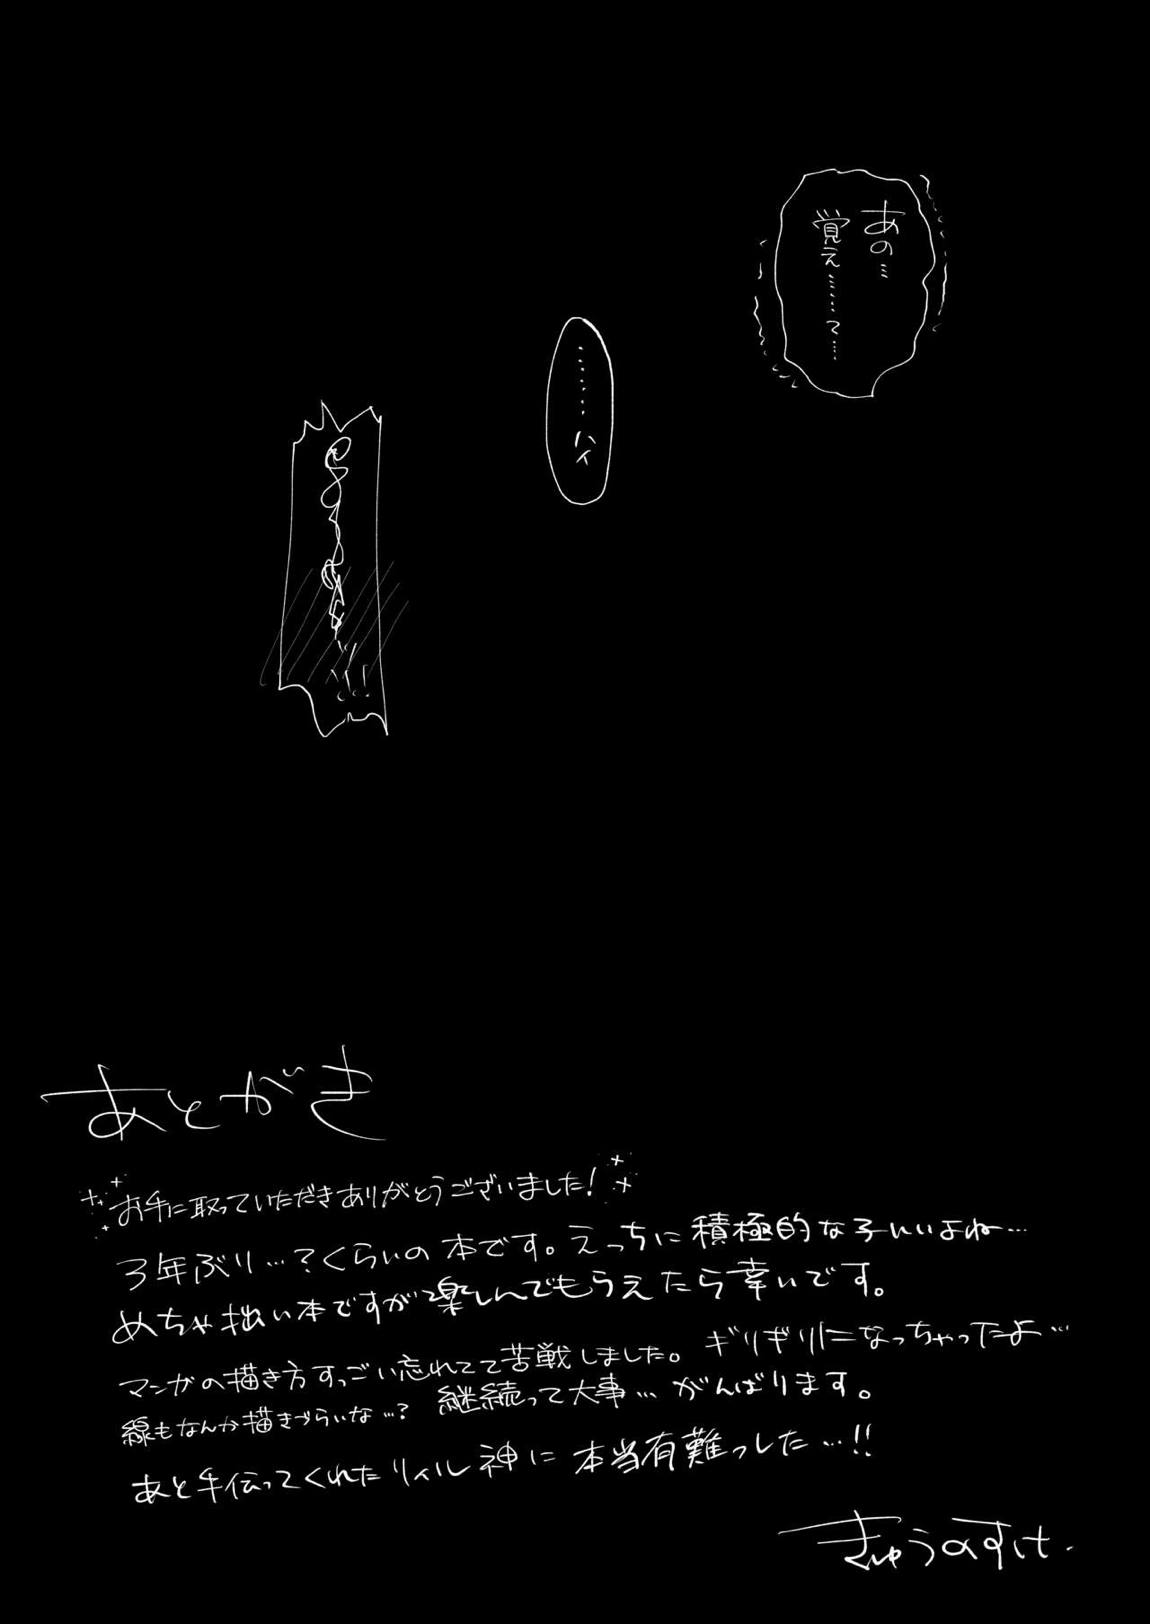 あの…
覚え……て…
………ハイ
あとがき
お手に取っていただきありがとうございました!
3年ぶり…?くらいの本です。えっちに積極的な子いいよね…
めちゃ拙い本ですが楽しんでもらえたら幸いです。
マンガの描き方すっごい忘れてて苦戦しました。ギリギリになっちゃったよ…
線もなんか描きづらいな…? 継続って大事…がんばります。
あと手伝ってくれたリィル神に本当有難っした…!!
きゅうのすけ.